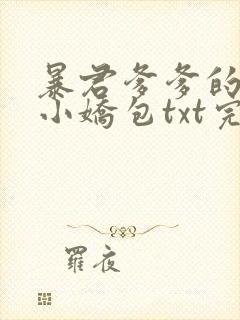 暴君爹爹的
小嬌包txt完
羅夜